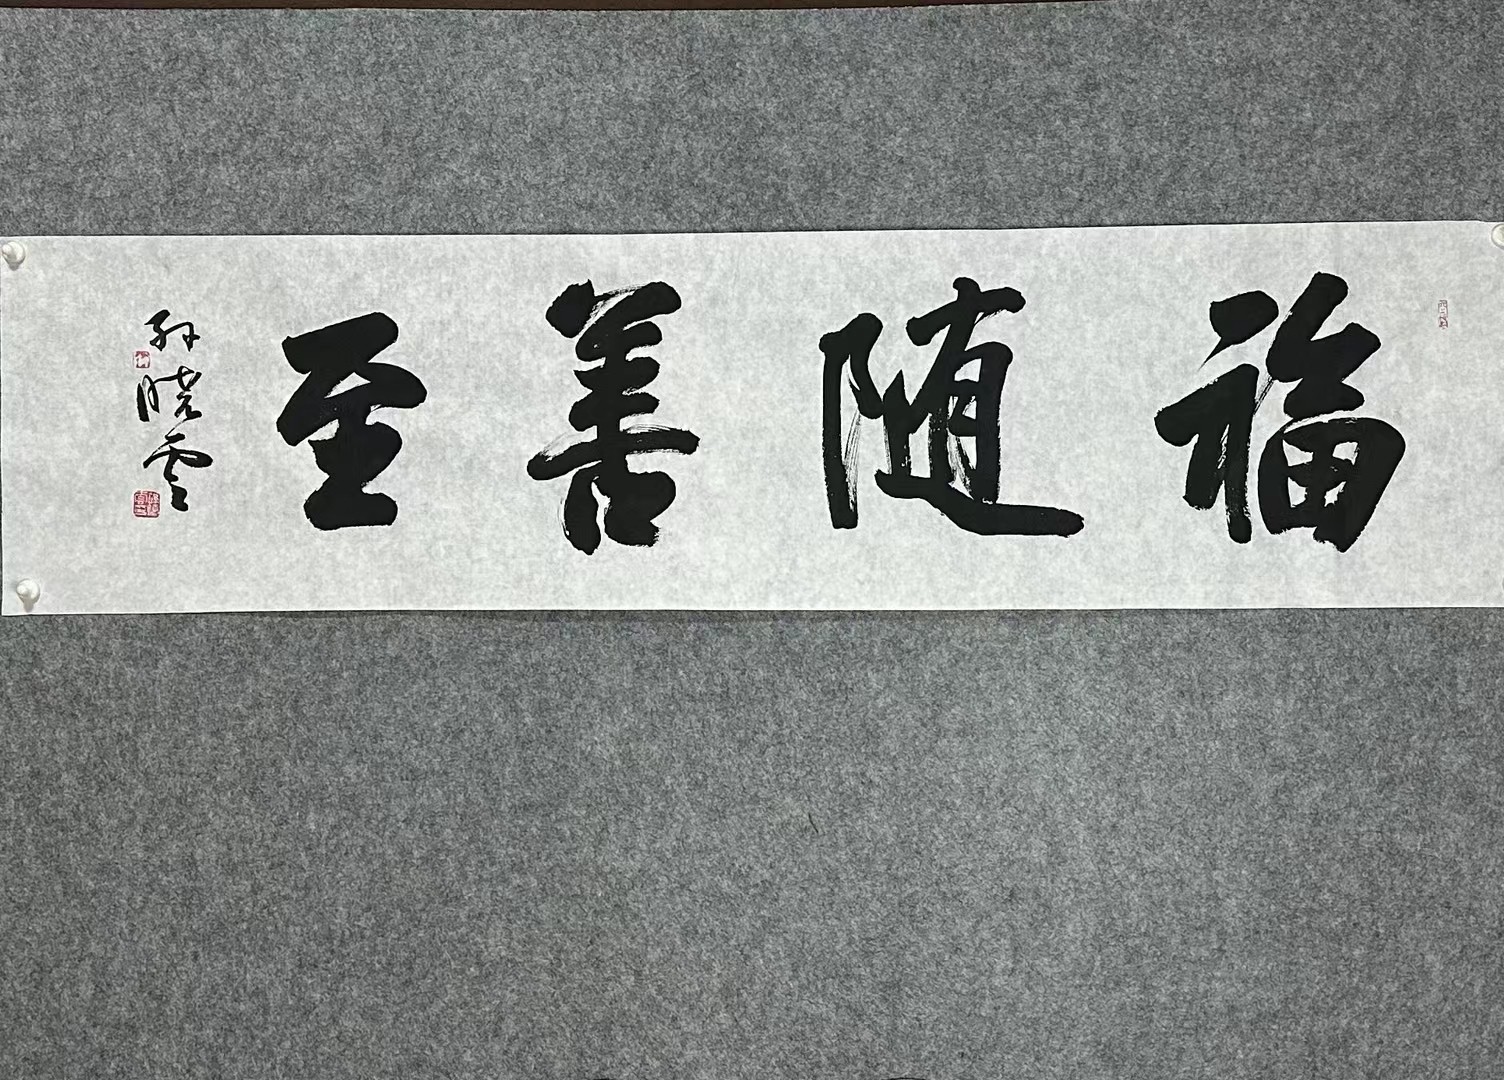 福随善至
孙晓云